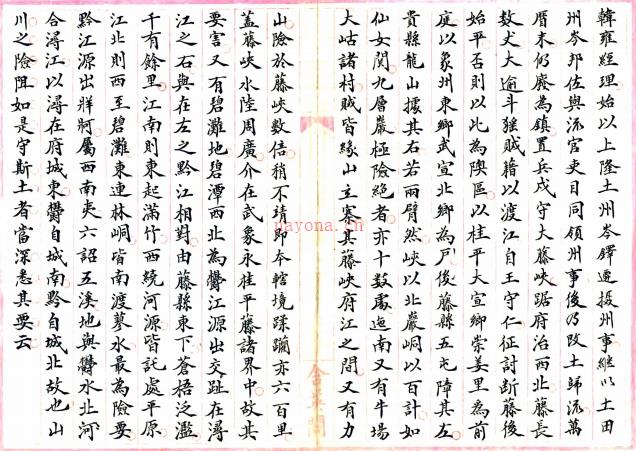 韓雍經理始以上隆土州岑鐸遷投州事繼以土田
州岑邦佐與流官吏目同領州事後乃改土歸流萬
曆末仍廢為鎮置兵戍守大藤峽踞府治西北藤長
數丈大逾斗猺賊藉以渡江自王守仁征討斷藤後
始平否則以此為隩區以桂平大宣鄉崇姜里為前
庭以象州東鄉武宣北鄉為戶後藤縣五屯障其左
貴縣龍山據其右若兩臂然峽以北巖峒以百計如
仙女関九層巖極險絕者亦十數處迤南又有牛場
大岵諸村賊皆緣山立寨其藤峽府江之間又有力
山險於藤峽數倍稍不靖即本轄境蹂躪亦六百里
蓋藤峽水陸周廣介在武象永桂平藤諸界中故其
要害又有碧灘地碧潭西北為鬱江源出交趾在潯
江之石與在左之黔江相對由藤縣東下蒼梧泛濫
千有餘里江南則東起滿竹西繞河源皆託處平原
江北則西至碧灘東連林峒皆南渡蓼水最為險要
黔江源出牂牁屬西南夷六詔五溪地與鬱水北河
合潯江以潯在府城東鬱自城南黔自城北故也山
川之險阻如是守斯土者當深悉其要云
dayona.cn